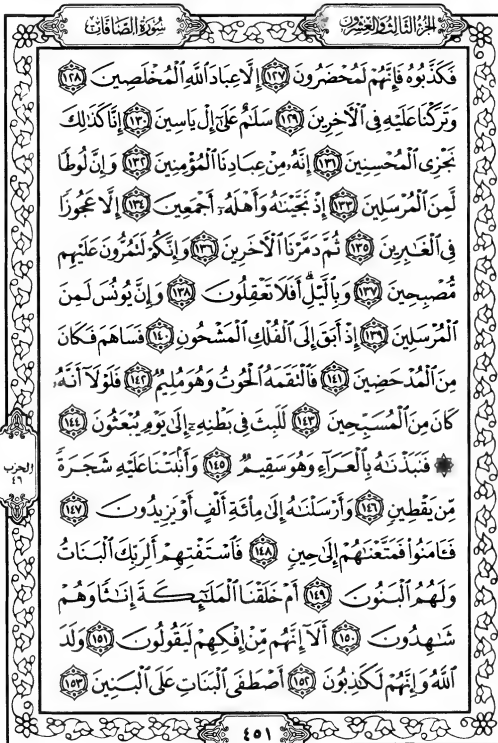 الجزء الثالث والعشرون
سورة الصافات
فَكَذَّبُوهُ فَإِنَّهُمْ لَمُحْضَرُونَ ١٢٧ إِلَّا عِبَادَ ٱللَّهِ ٱلْمُخْلَصِينَ ١٢٨
وَتَرَكْنَا عَلَيْهِ فِى ٱلْأَخِرِينَ ١٢٩ سَلَٰمٌ عَلَىٰٓ إِلْ يَاسِينَ ١٣٠ إِنَّا كَذَٰلِكَ
نَجْزِى ٱلْمُحْسِنِينَ ١٣١ إِنَّهُۥ مِنْ عِبَادِنَا ٱلْمُؤْمِنِينَ ١٣٢ وَإِنَّ لُوطًا
لَّمِنَ ٱلْمُرْسَلِينَ ١٣٣ إِذْ نَجَّيْنَٰهُ وَأَهْلَهُۥٓ أَجْمَعِينَ ١٣٤ إِلَّا عَجُوزًا
فِى ٱلْغَٰبِرِينَ ١٣٥ ثُمَّ دَمَّرْنَا ٱلْأَخَرِينَ ١٣٦ وَإِنَّكُمْ لَتَمُرُّونَ عَلَيْهِم
مُّصْبِحِينَ ١٣٧ وَبِٱلَّيْلِ ۗ أَفَلَا تَعْقِلُونَ ١٣٨ وَإِنَّ يُونُسَ لَمِنَ
ٱلْمُرْسَلِينَ ١٣٩ إِذْ أَبَقَ إِلَى ٱلْفُلْكِ ٱلْمَشْحُونِ ١٤٠ فَسَاهَمَ فَكَانَ
مِنَ ٱلْمُدْحَضِينَ ١٤١ فَٱلْتَقَمَهُ ٱلْحُوتُ وَهُوَ مُلِيمٌ ١٤٢ فَلَوْلَآ أَنَّهُۥ
كَانَ مِنَ ٱلْمُسَبِّحِينَ ١٤٣ لَلَبِثَ فِى بَطْنِهِۦٓ إِلَىٰ يَوْمِ يُبْعَثُونَ ١٤٤
۞ فَنَبَذْنَٰهُ بِٱلْعَرَآءِ وَهُوَ سَقِيمٌ ١٤٥ وَأَنۢبَتْنَا عَلَيْهِ شَجَرَةً
مِّن يَقْطِينٍ ١٤٦ وَأَرْسَلْنَٰهُ إِلَىٰ مِا۟ئَةِ أَلْفٍ أَوْ يَزِيدُونَ ١٤٧
فَـَٔامَنُوا۟ فَمَتَّعْنَٰهُمْ إِلَىٰ حِينٍ ١٤٨ فَٱسْتَفْتِهِمْ أَلِرَبِّكَ ٱلْبَنَاتُ
وَلَهُمُ ٱلْبَنُونَ ١٤٩ أَمْ خَلَقْنَا ٱلْمَلَٰٓئِكَةَ إِنَٰثًا وَهُمْ
شَٰهِدُونَ ١٥٠ أَلَآ إِنَّهُم مِّنْ إِفْكِهِمْ لَيَقُولُونَ ١٥١ وَلَدَ
ٱللَّهُ وَإِنَّهُمْ لَكَٰذِبُونَ ١٥٢ أَصْطَفَى ٱلْبَنَاتِ عَلَى ٱلْبَنِينَ ١٥٣
الحزب
٤٦
٤٥١